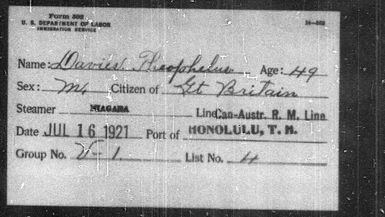 Form 502
U. S. DEPARTMENT OF LABOR
IMMIGRATION SERVICE
Name: Davies Theophelus Age: 49
Sex: M. Citizen of Gt Britain
Steamer NIAGARA Line Can-Austr. R. M. Line
Date JUL 16 1921 Port of HONOLULU, T. H.
Group No. V-1 List No. 4